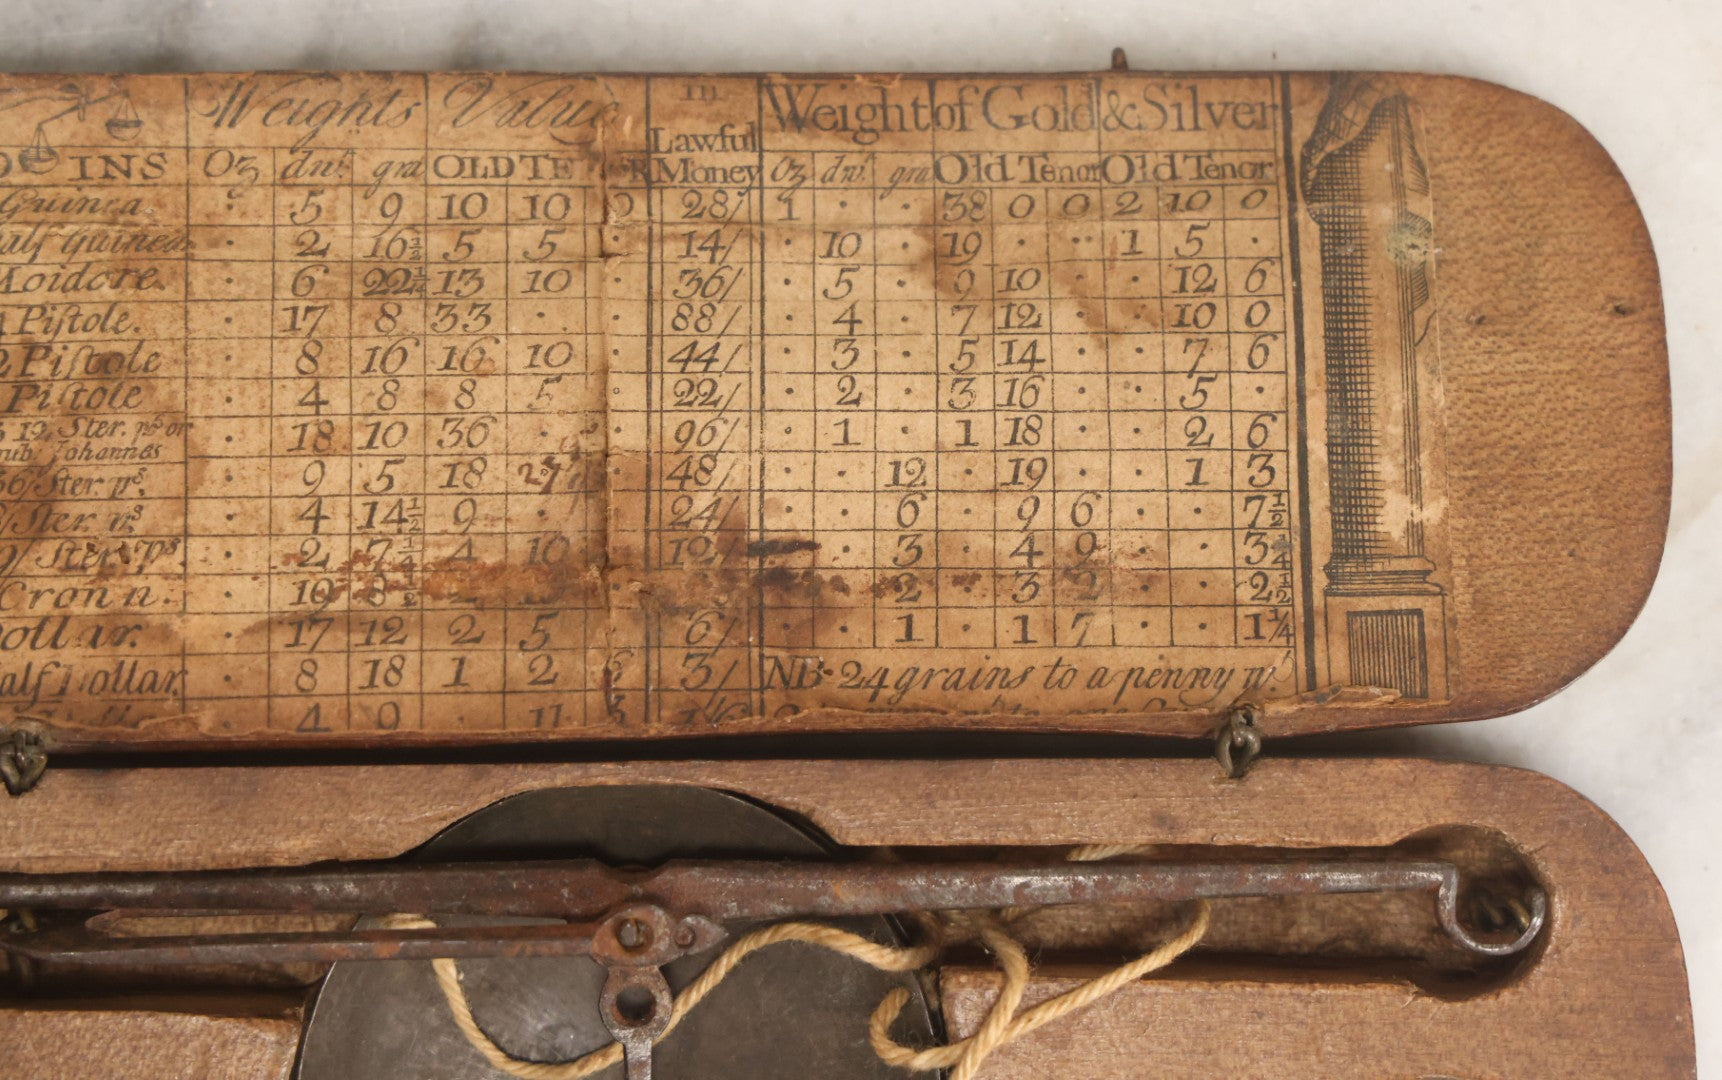 Weights Value In Weight of Gold & Silver
Lawful
Oz dwt gra OLD TE Money Oz dwt gra Old Tenor Old Tenor
Guinea · 5 9 10 10 0 28/ 1 · · 38 0 0 2 10 0
alf Guinea · 2 16½ 5 5 · 14/ · 10 · 19 · · 1 5 ·
Moidore · 6 22¼ 13 10 · 36/ · 5 · 9 10 · · 12 6
4 Pistole. · 17 8 33 · · 88/ · 4 · 7 12 · · 10 0
2 Pistole · 8 16 16 10 · 44/ · 3 · 5 14 · · 7 6
Pistole · 4 8 8 5 · 22/ · 2 · 3 16 · · 5 ·
12 Ster. ps or · 18 10 36 · · 96/ · 1 · 1 18 · · 2 6
Johannes
36/Ster. ps. · 9 5 18 · 48/ · · 12 · 19 · · 1 3
/Ster. ps · 4 14½ 9 · · 24/ · · 6 · 9 6 · · 7½
9/ Ster. ps · 2 7¼ 4 10 · 12/ · · 3 · 4 9 · · 3¾
Crown. · 19 8½ 2 · · 2 · 3 2 · · 2½
ollar. · 17 12 2 5 · 6/ · · 1 · 1 7 · · 1¼
alf Dollar · 8 18 1 2 6 3/ NB. 24 grains to a penny wt.
· 4 9 · 11 3 1/6